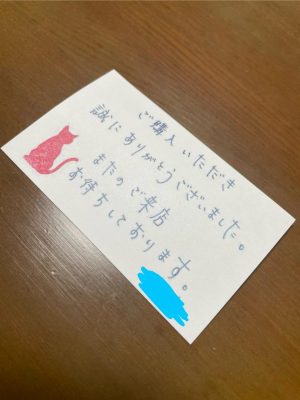 ご購入いただき
誠にありがとうございました。
またのご来店
お待ちしております。